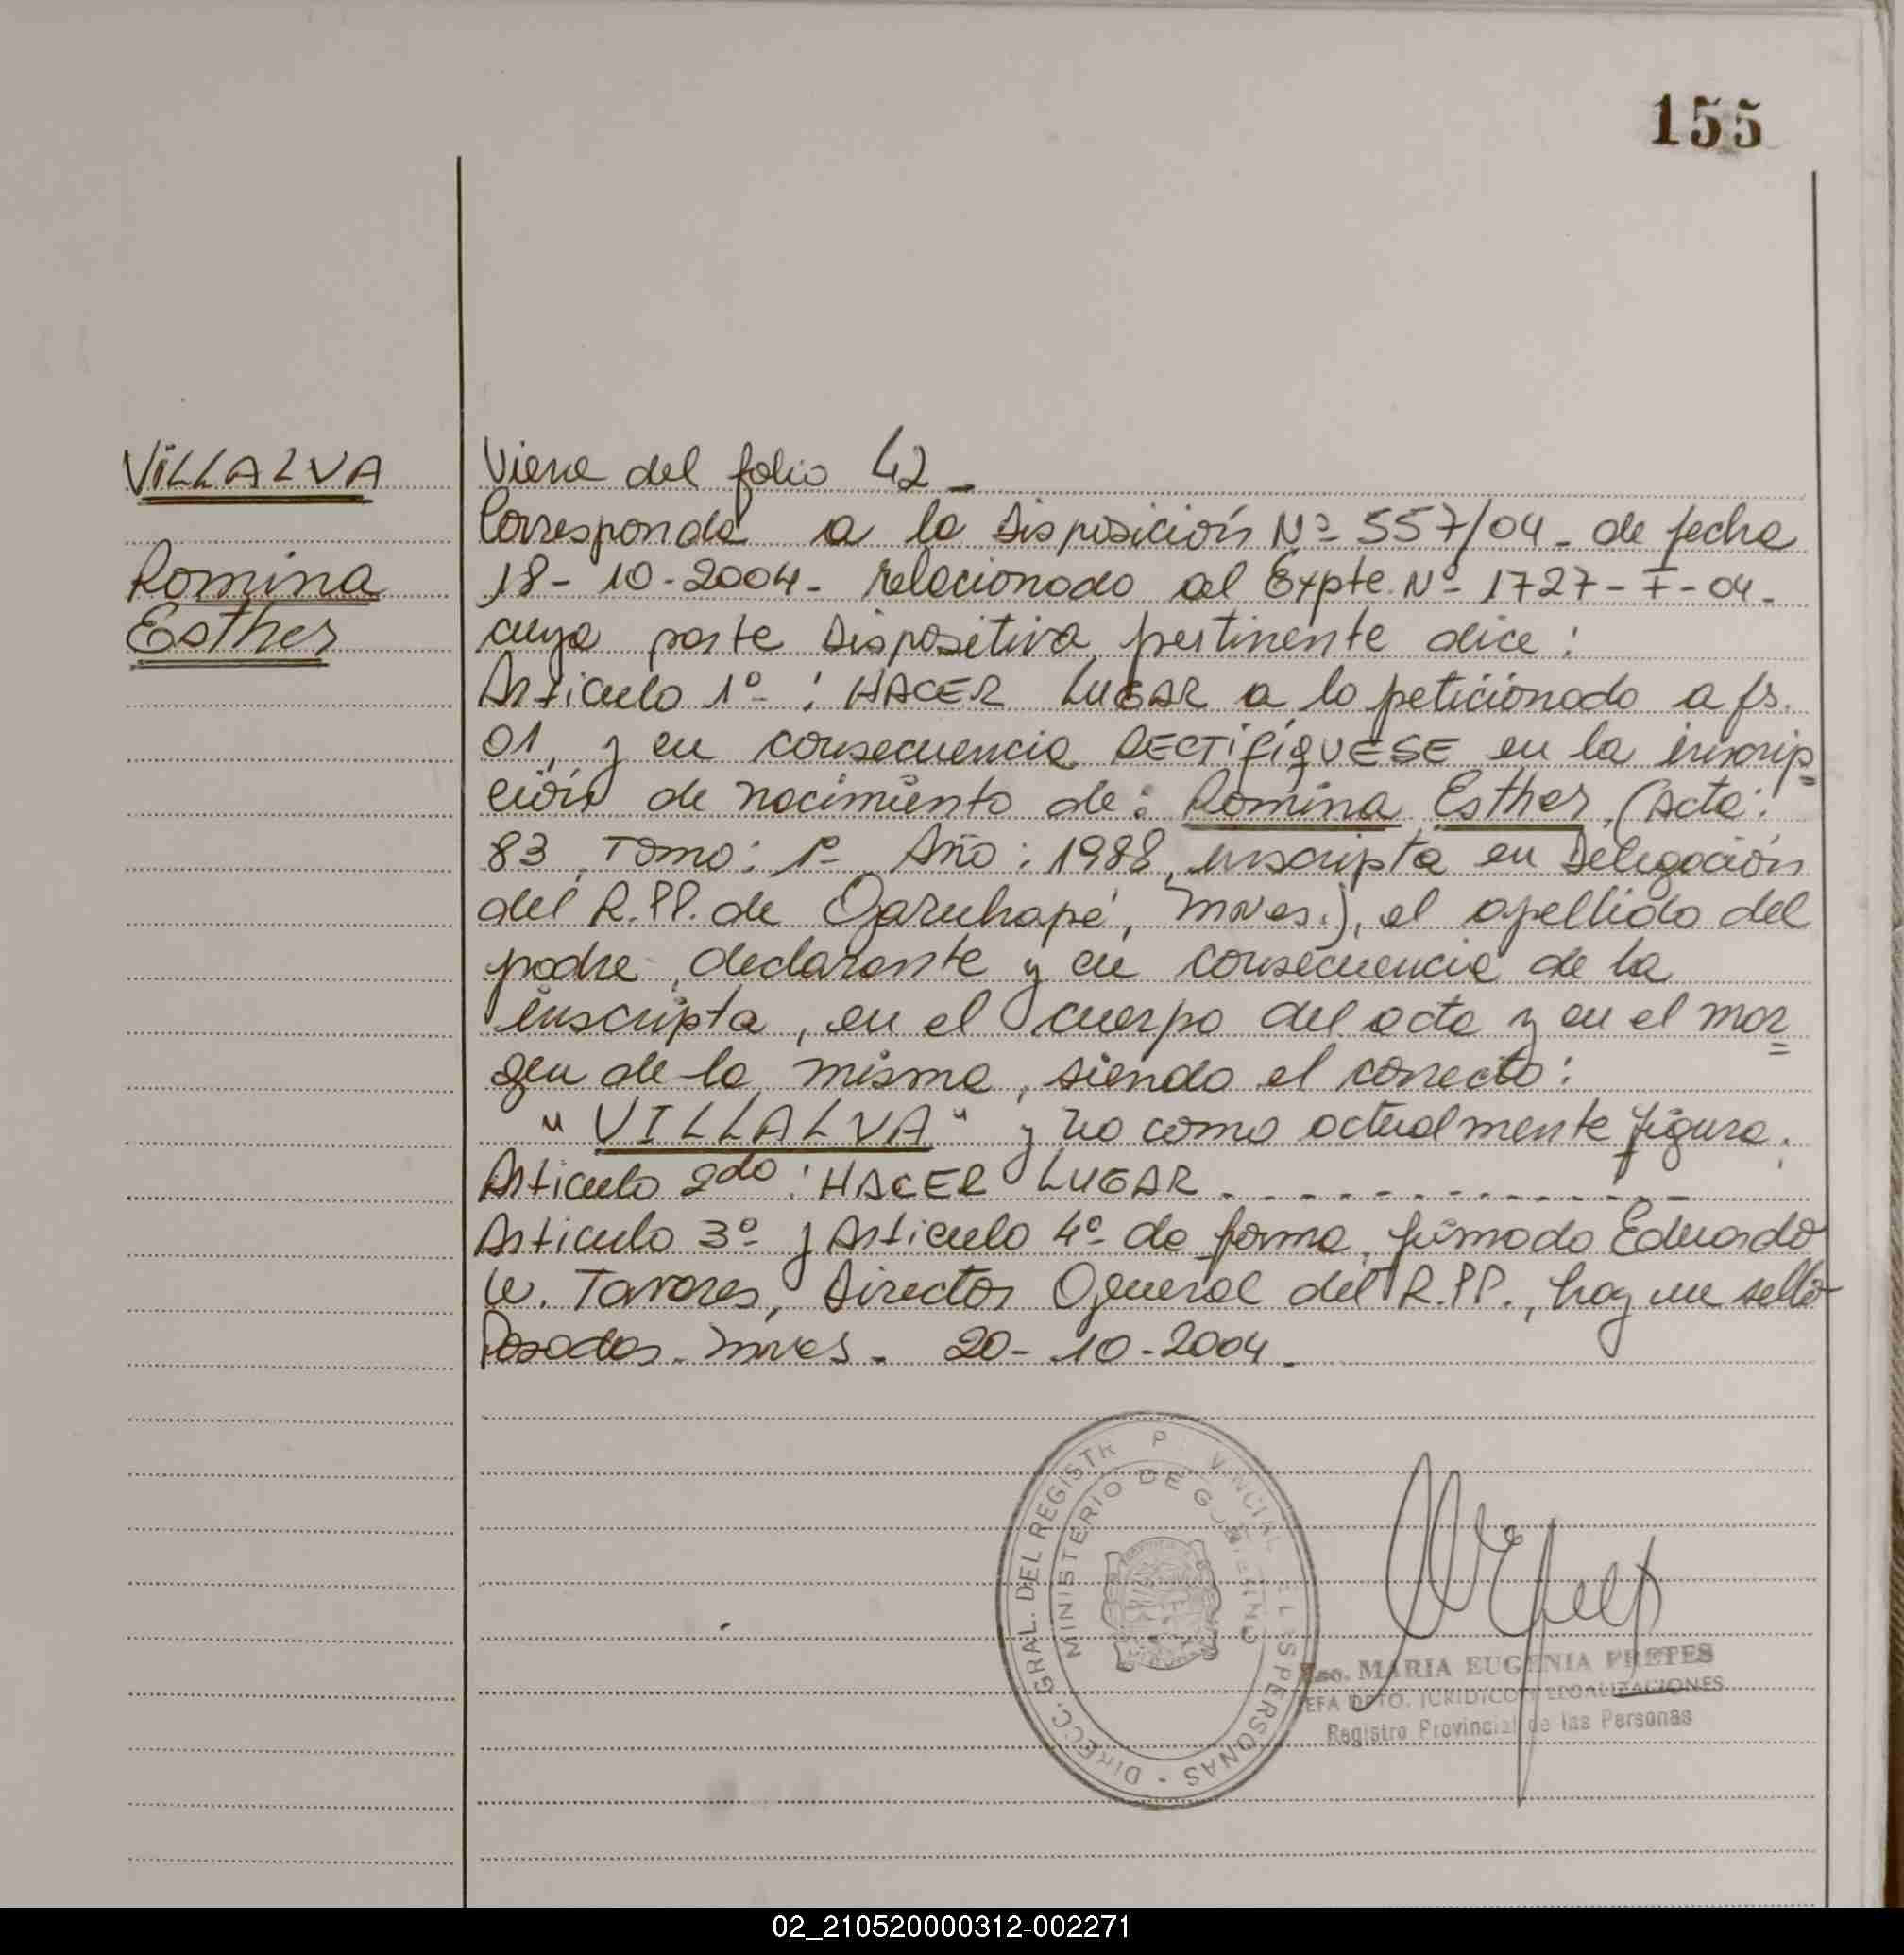 155
VILLALVA
Romina
Esther
Viene del folio 42 -
Corresponde a la Disposición Nº 557/04 - de fecha
18 - 10 - 2004 - relacionado al Expte. Nº 1727 - F - 04 -
cuya parte Dispositiva pertinente dice :
Articulo 1º : HACER LUGAR a lo peticionado a fs.
01, y en consecuencia RECTIFÍQUESE en la inscrip
ción de nacimiento de: Romina Esther, (Acta:
83, Tomo: 1º Año: 1988, inscripta en Delegación
del R.PP. de Garuhapé, Mnes.), el apellido del
padre declarante y en consecuencia de la
inscripta, en el cuerpo del acta y en el mar
gen de la misma, siendo el correcto:
"VILLALVA" y no como actualmente figura.
Articulo 2do : HACER LUGAR - - - - - - - - - - - - -
Articulo 3º y Articulo 4º de forma, firmado Eduardo
W. Tavares, Director General del R.PP., hay un sello
Posadas - Mnes - 20 - 10 - 2004 -
DIRECC. GRAL. DEL REGISTR P VINCIAL E L S PERSONAS -
MINISTERIO DE GOBIERNO
Esc. MARIA EUGENIA PRETES
JEFA DPTO. JURIDICO Y LEGALIZACIONES
Registro Provincial de las Personas
02_210520000312-002271